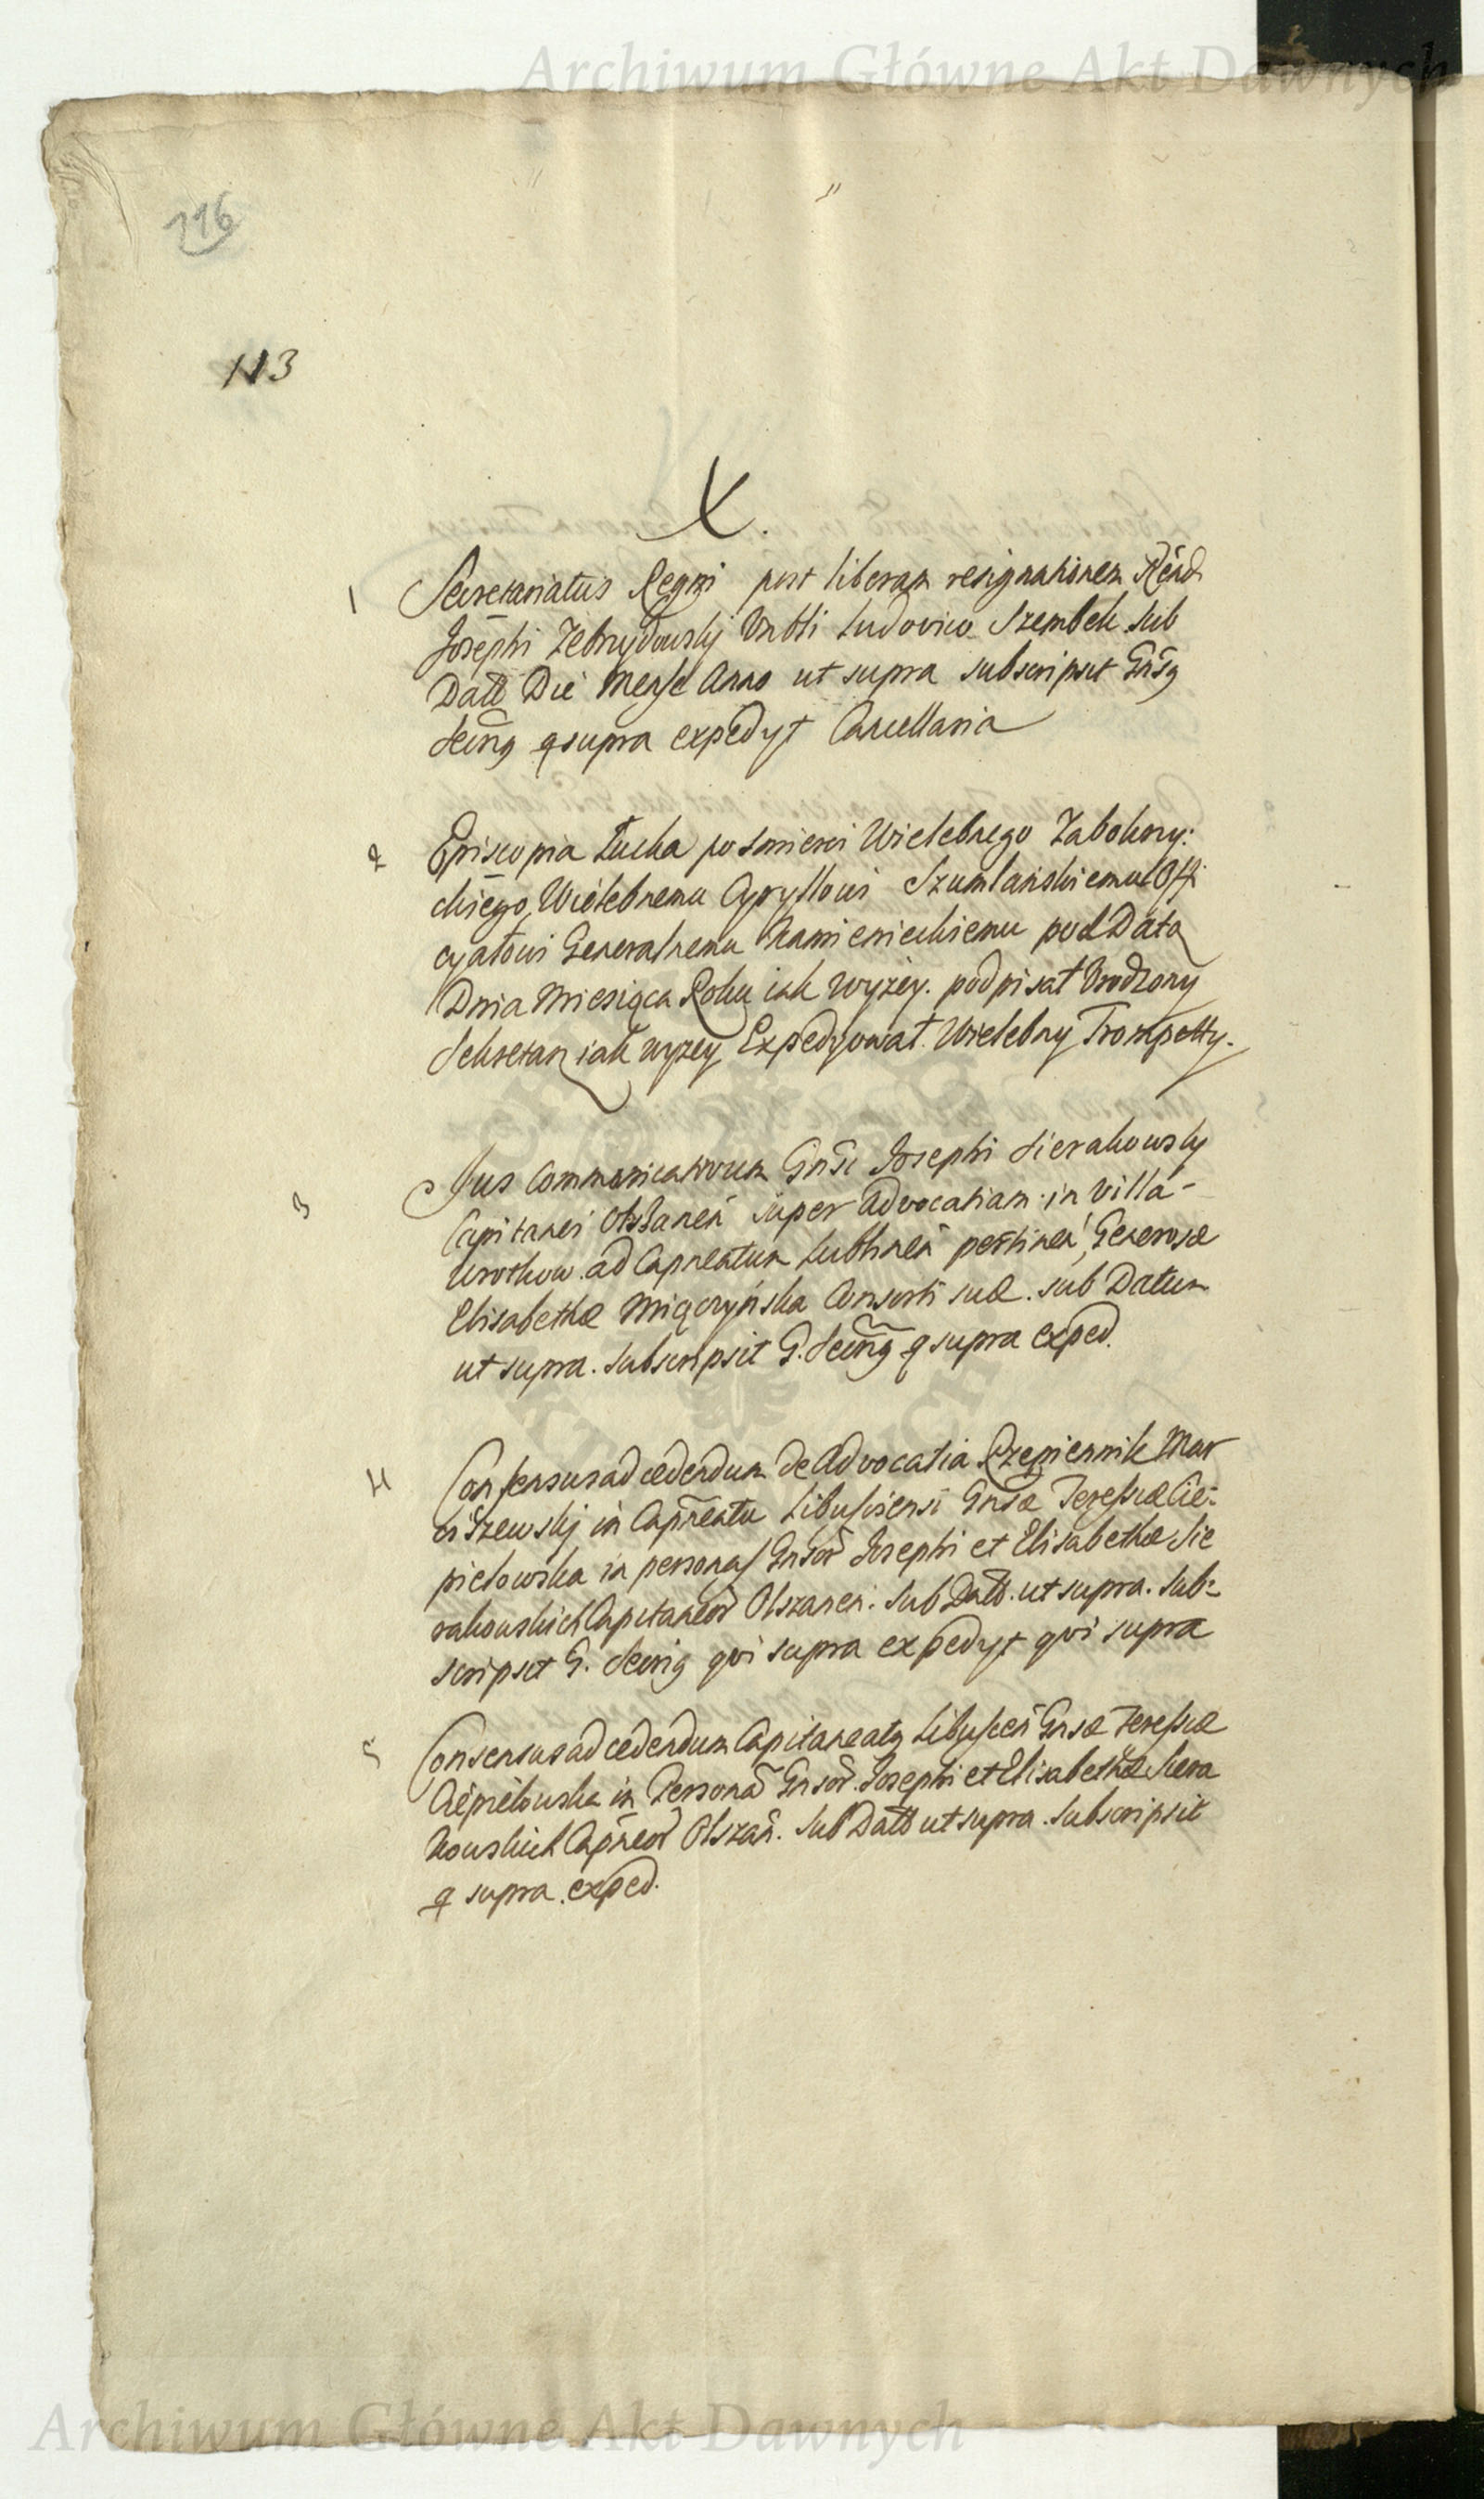 Archiwum Główne Akt Dawnych
116
113
X.
1 Secretariatus Regni post liberam resignationem Rend
Josephi Zebrzydowskj Vrbli Ludovico Szembek sub
Datt Die Mense Anno ut supra subscripsit Gnsg
Secrig q supra expedyt Cancellaria
2 Episcopia Łucka po smierci Wielebnego Zabokrzy:
ckiego, Wielebnemu Cyryllowi Szumlańskiemu Offi
cyałowi Generalnemu Kamienieckiemu pod Datą
Dnia Miesiąca Roku iak wyzey. podpisał Vrodzony
Sekretarz iak wyzey Expedyował Wielebny Trompetty.
3 Jus Communicativum Gnsi Josephi Sierakowsky
Capitanei Olszanen super Advocatiam in Villa
ad Capneatum Lublinen pertinen, Generosæ
Elisabethæ Miączyńska Consorti suæ. sub Datum
ut supra. subscripsit G. Secrig q supra exped.
4 Consensus ad cedendum de Advocatia Rzepiennik Mar
ciszewskj in Capneatu Libusiensi Gnsæ Teressæ Cie:
pielowska in personas Gnsor Josephi et Elisabethæ Sie
rakowskich Capitaneor Olszanen. Sub Datt. ut supra. Sub=
scripsit G. Secrig qvi supra expedyt qvi supra
5 Consensus ad cedendum Capitaneatg Libuscen Gnsæ Teressæ
Ciepielowska in Persona Gnsor. Josephi et Elisabethæ Siera
kowskich Capneor Olszan. Sub Datt ut supra. Subscripsit
q supra. exped.
Archiwum Główne Akt Dawnych